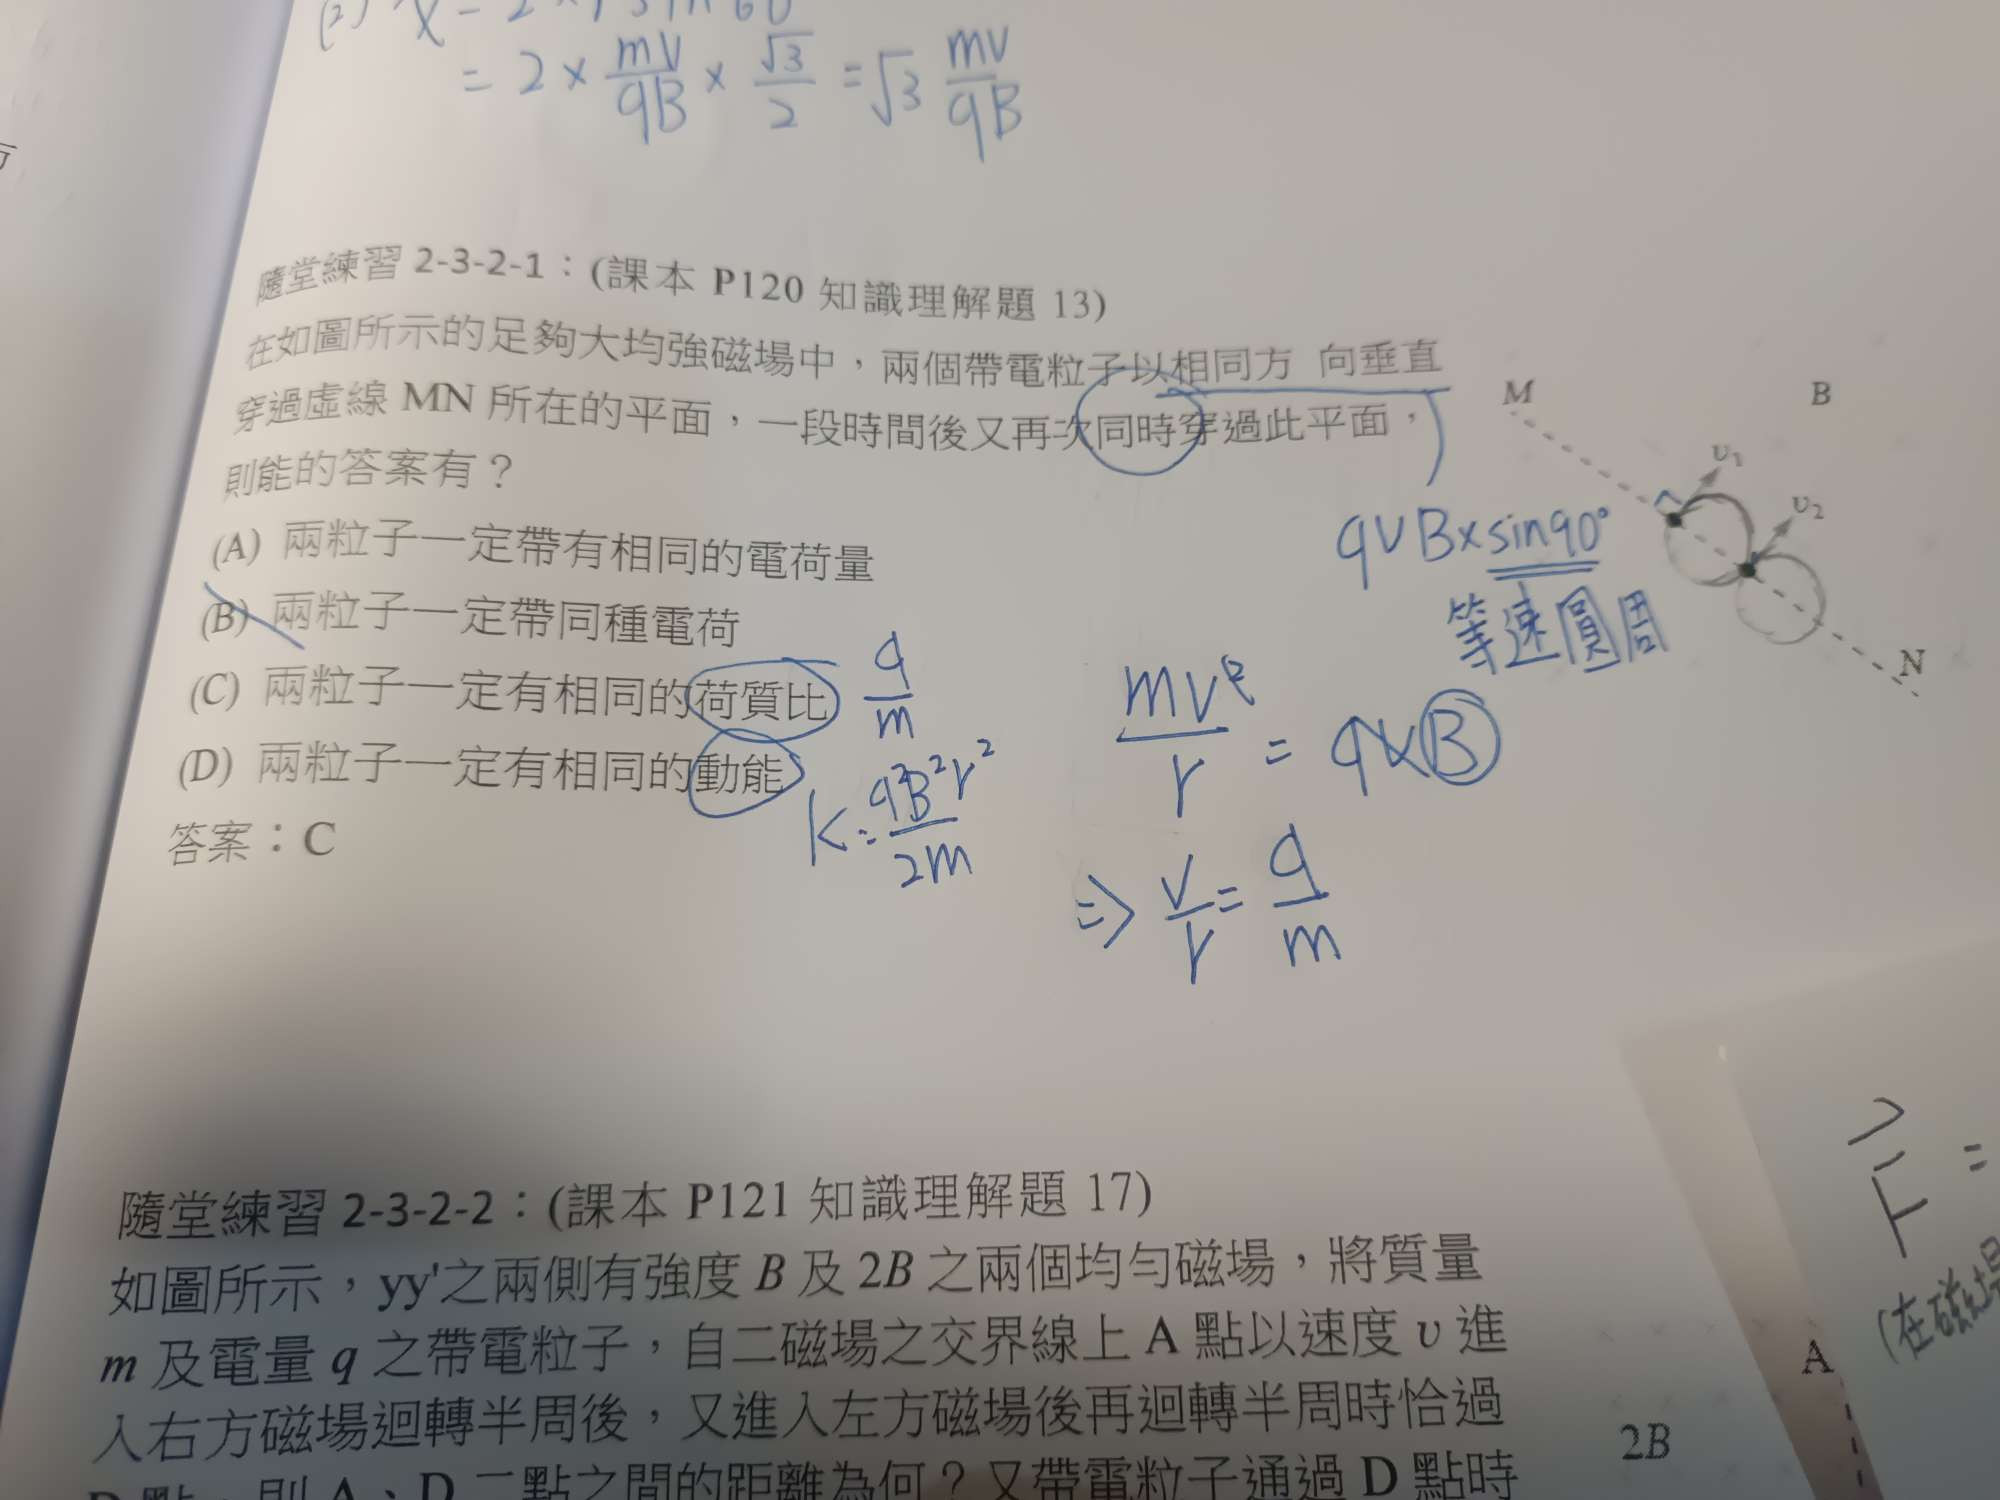 (2) X = 2 × r sin 60
= 2 × mv/qB × √3/2 = √3 mv/qB
隨堂練習 2-3-2-1：(課本 P120 知識理解題 13)
在如圖所示的足夠大均強磁場中，兩個帶電粒子以相同方 向垂直
穿過虛線 MN 所在的平面，一段時間後又再次同時穿過此平面，
則能的答案有？
(A) 兩粒子一定帶有相同的電荷量
(B) 兩粒子一定帶同種電荷
(C) 兩粒子一定有相同的荷質比
q/m
(D) 兩粒子一定有相同的動能
K = q²B²r²/2m
答案：C
M
B
υ1
υ2
N
qvB×sin90°
等速圓周
mv²/r = qvB
⇒ v/r = q/m
隨堂練習 2-3-2-2：(課本 P121 知識理解題 17)
如圖所示，yy'之兩側有強度 B 及 2B 之兩個均勻磁場，將質量
m 及電量 q 之帶電粒子，自二磁場之交界線上 A 點以速度 υ 進
入右方磁場迴轉半周後，又進入左方磁場後再迴轉半周時恰過
D 點，則 A、D 二點之間的距離為何？又帶電粒子通過 D 點時
2B
A
F =
(在磁場